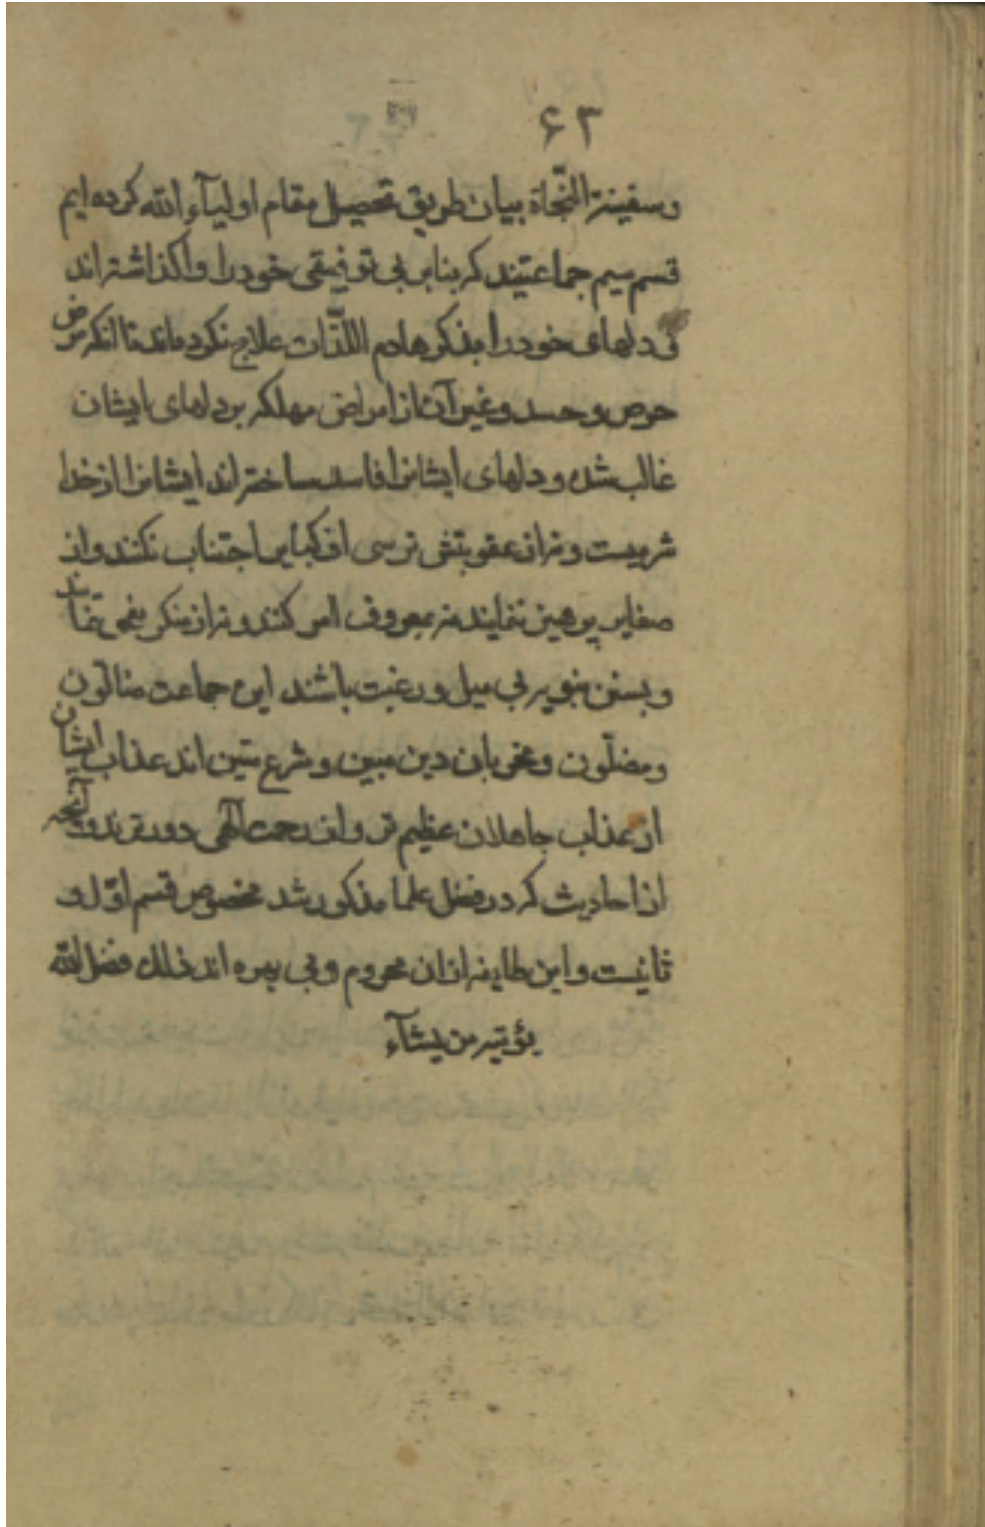 ۶۲
وسفینة النّجاة بیان طریق تحصیل مقام اولیآء الله کرده ایم
قسم سیم جماعتیند که بنابر بی توفیقی خود را واکذاشته اند
و دلهای خود را بذکر هادم اللذّات علاج نکرده اند تا انکه مرض
حرص و حسد و غیر آن از امراض مهلکه بر دلهای ایشان
غالب شده و دلهای ایشانرا فاسد ساخته اند ایشانرا از خدا
شرمیست و نه از عقوبتش ترسی از کبایر اجتناب نکنند و از
صغایر پرهیز ننمایند نه بمعروف امر کنند و نه از منکر نهی
و بسنن نبویه بی میل و رغبت باشند این جماعت ضالّون
و مضلّون و مخربان دین مبین و شرع متین اند عذاب ایشان
از عذاب جاهلان عظیم تر و از رحمت آلهی دورترند و آنچه
از احادیث که در فضل علما مذکور شد مخصوص قسم اوّل و
ثانیست و این طایفه ازان محروم و بی بهره اند ذلك فضل الله
یؤتیه من یشآء